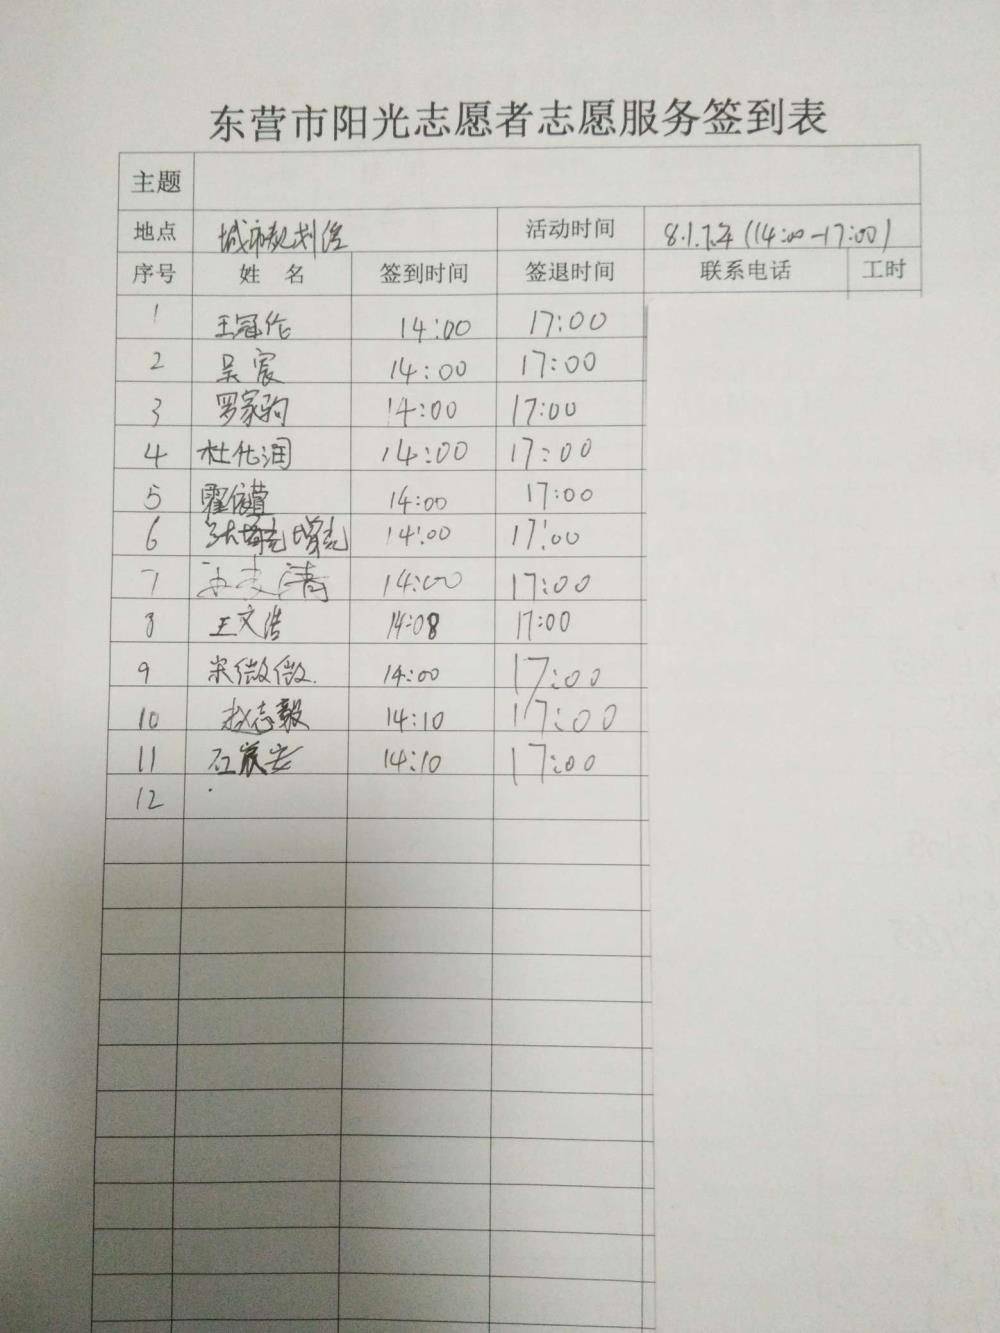 东营市阳光志愿者志愿服务签到表
主题
地点 城市规划馆 活动时间 8.1.下午(14:00-17:00)
序号 姓名 签到时间 签退时间 联系电话 工时
1 王冠伦 14:00 17:00
2 吴宸 14:00 17:00
3 罗家驹 14:00 17:00
4 杜化润 14:00 17:00
5 14:00 17:00
6 14:00 17:00
7 14:00 17:00
8 王文浩 14:08 17:00
9 宋微微. 14:00 17:00
10 赵志毅 14:10 17:00
11 14:10 17:00
12